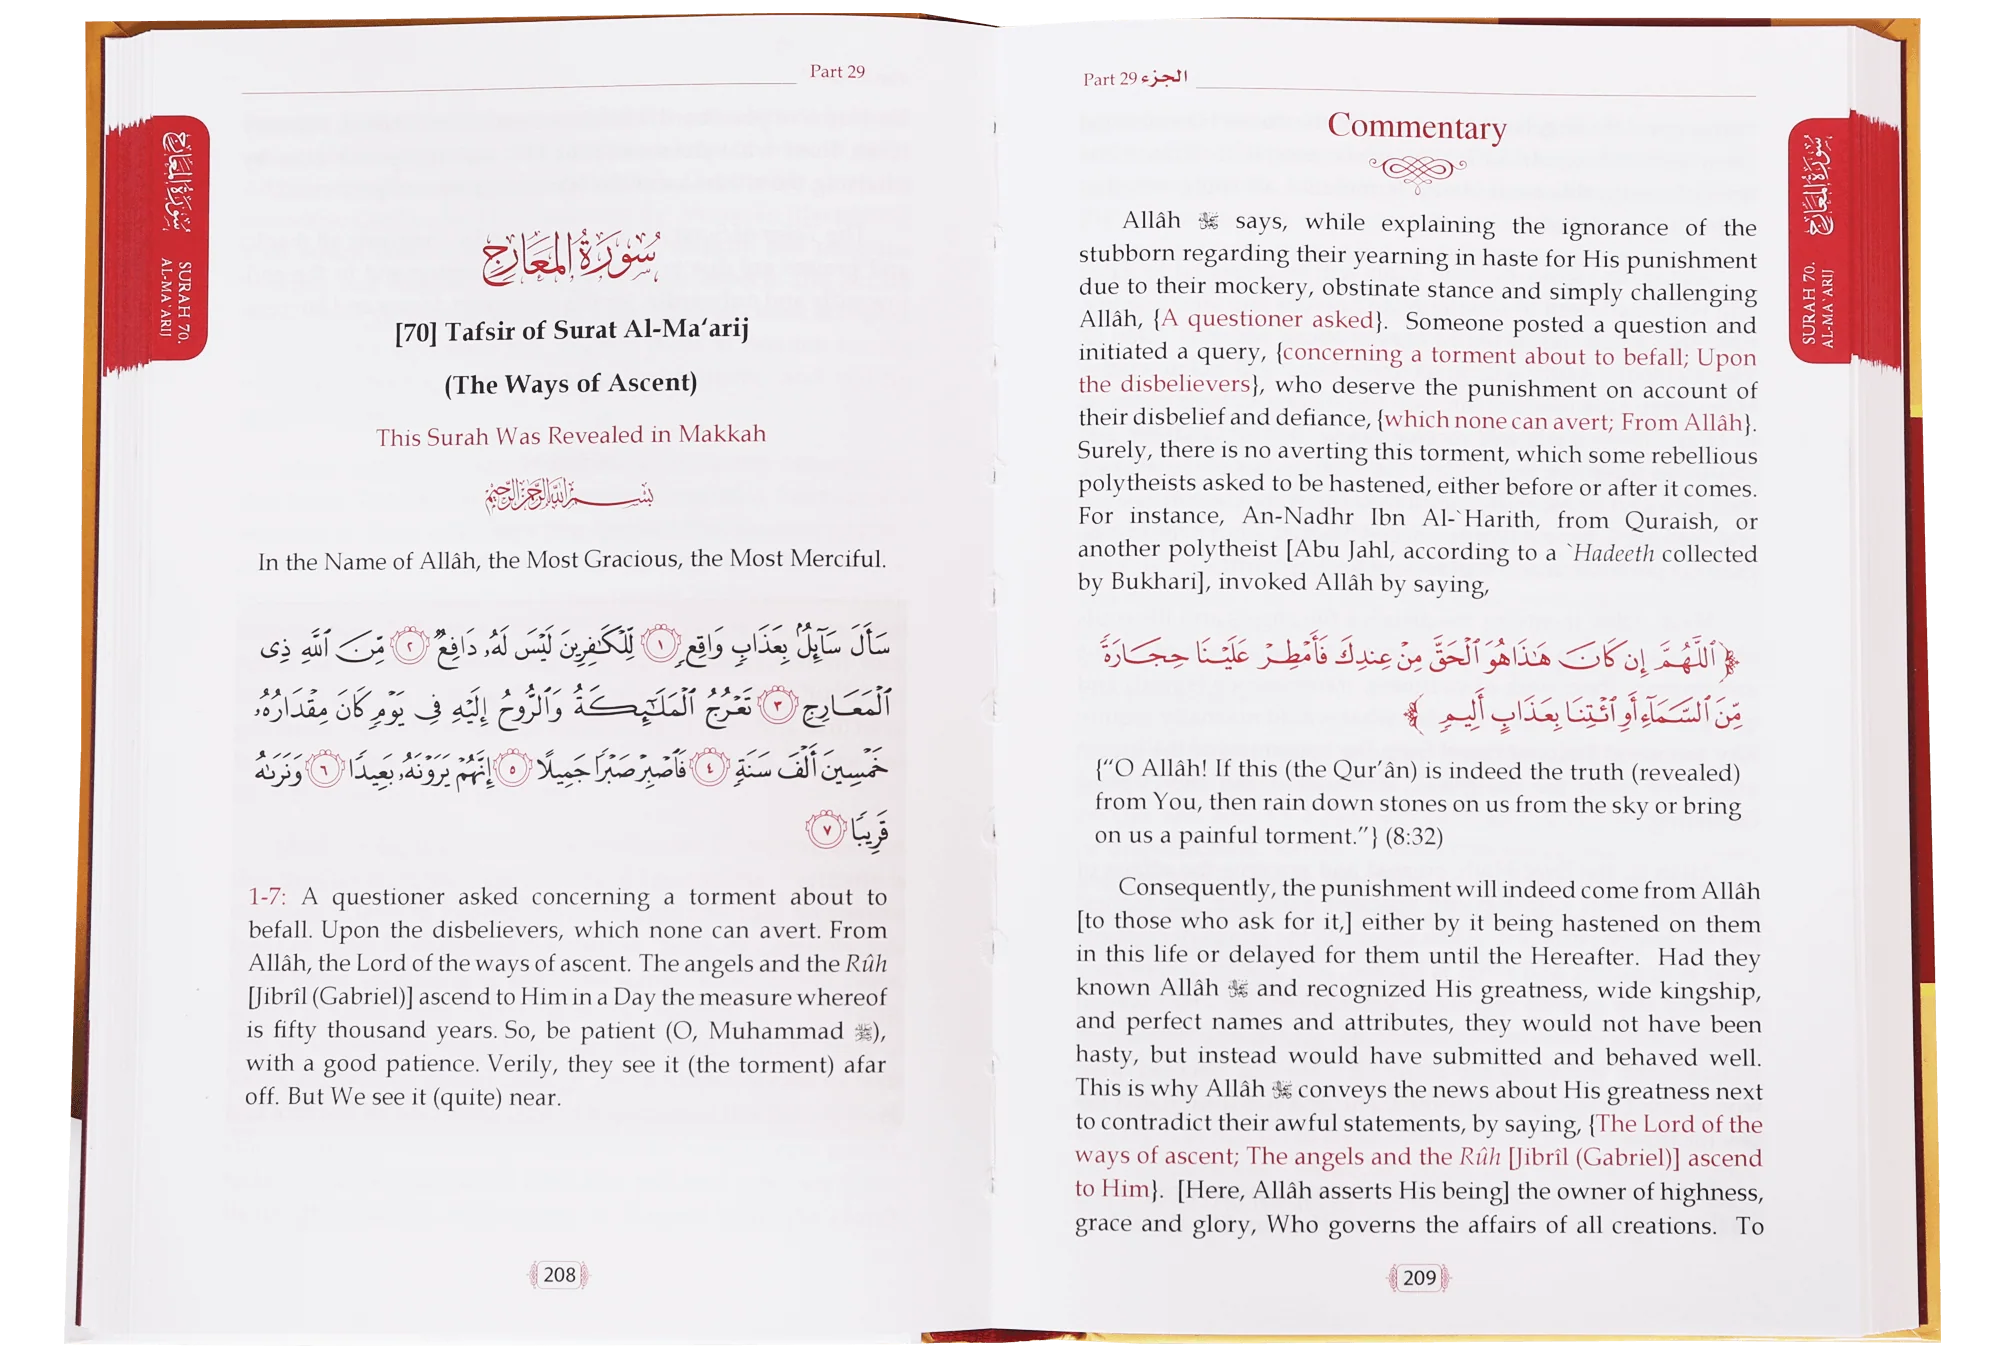 Part 29
سُورَةُ المَعَارِجِ
SURAH 70.
AL-MA`ARIJ
سُورَةُ المَعَارِجِ
[70] Tafsir of Surat Al-Ma‘arij
(The Ways of Ascent)
This Surah Was Revealed in Makkah
بِسْمِ اللَّهِ الرَّحْمَنِ الرَّحِيمِ
In the Name of Allâh, the Most Gracious, the Most Merciful.
سَأَلَ سَآئِلٌۢ بِعَذَابٍ وَاقِعٍ ١ لِّلْكَٰفِرِينَ لَيْسَ لَهُۥ دَافِعٌ ٢ مِّنَ ٱللَّهِ ذِى
ٱلْمَعَارِجِ ٣ تَعْرُجُ ٱلْمَلَٰٓئِكَةُ وَٱلرُّوحُ إِلَيْهِ فِى يَوْمٍ كَانَ مِقْدَارُهُۥ
خَمْسِينَ أَلْفَ سَنَةٍ ٤ فَٱصْبِرْ صَبْرًا جَمِيلًا ٥ إِنَّهُمْ يَرَوْنَهُۥ بَعِيدًا ٦ وَنَرَىٰهُ
قَرِيبًا ٧
1-7: A questioner asked concerning a torment about to
befall. Upon the disbelievers, which none can avert. From
Allâh, the Lord of the ways of ascent. The angels and the Rûh
[Jibrîl (Gabriel)] ascend to Him in a Day the measure whereof
is fifty thousand years. So, be patient (O, Muhammad ﷺ),
with a good patience. Verily, they see it (the torment) afar
off. But We see it (quite) near.
208
Part 29 الجزء
سُورَةُ المَعَارِجِ
SURAH 70.
AL-MA`ARIJ
Commentary
Allâh ﷻ says, while explaining the ignorance of the
stubborn regarding their yearning in haste for His punishment
due to their mockery, obstinate stance and simply challenging
Allâh, {A questioner asked}. Someone posted a question and
initiated a query, {concerning a torment about to befall; Upon
the disbelievers}, who deserve the punishment on account of
their disbelief and defiance, {which none can avert; From Allâh}.
Surely, there is no averting this torment, which some rebellious
polytheists asked to be hastened, either before or after it comes.
For instance, An-Nadhr Ibn Al-`Harith, from Quraish, or
another polytheist [Abu Jahl, according to a `Hadeeth collected
by Bukhari], invoked Allâh by saying,
﴿ٱللَّهُمَّ إِن كَانَ هَٰذَا هُوَ ٱلْحَقَّ مِنْ عِندِكَ فَأَمْطِرْ عَلَيْنَا حِجَارَةً
مِّنَ ٱلسَّمَآءِ أَوِ ٱئْتِنَا بِعَذَابٍ أَلِيمٍ﴾
{“O Allâh! If this (the Qur’ân) is indeed the truth (revealed)
from You, then rain down stones on us from the sky or bring
on us a painful torment.”} (8:32)
Consequently, the punishment will indeed come from Allâh
[to those who ask for it,] either by it being hastened on them
in this life or delayed for them until the Hereafter. Had they
known Allâh ﷻ and recognized His greatness, wide kingship,
and perfect names and attributes, they would not have been
hasty, but instead would have submitted and behaved well.
This is why Allâh ﷻ conveys the news about His greatness next
to contradict their awful statements, by saying, {The Lord of the
ways of ascent; The angels and the Rûh [Jibrîl (Gabriel)] ascend
to Him}. [Here, Allâh asserts His being] the owner of highness,
grace and glory, Who governs the affairs of all creations. To
209